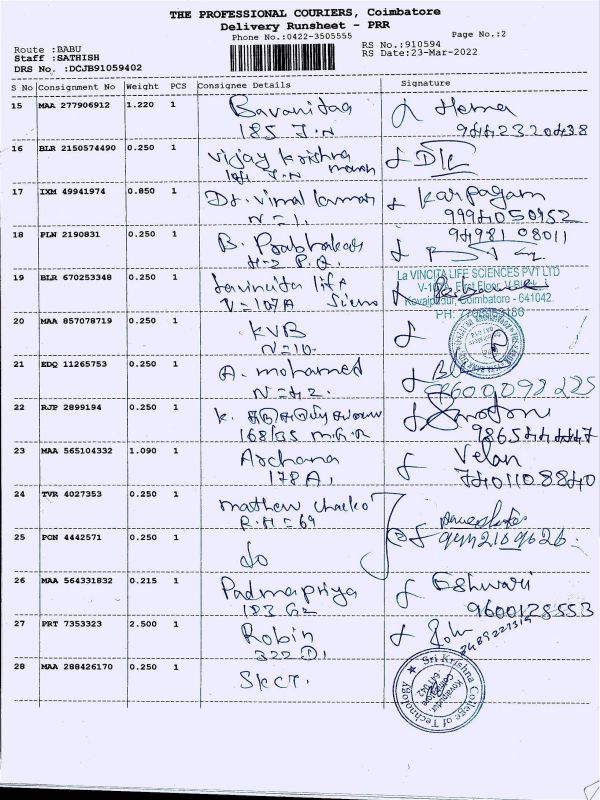 THE PROFESSIONAL COURIERS, Coimbatore
Delivery Runsheet - PRR
Phone No.:0422-3505555
Page No.:2
Route :BABU
Staff :SATHISH
DRS No. :DCJB91059402
RS No.:910594
RS Date:23-Mar-2022
S No Consignment No Weight PCS Consignee Details Signature
15 MAA 277906912 1.220 1 Bavanitaa Hema
185 J.N 9442320438
16 BLR 2150574490 0.250 1 Vijay Krishna
J.N
17 IXM 49941974 0.850 1 Dr. Vimal Kumar Karpagam
N=1. 9994050952
18 PLN 2190831 0.250 1 B. Prabhakar 94981 08011
H-2 P.Q.
19 BLR 670253348 0.250 1 Lavincita life
V=107A
La VINCITA LIFE SCIENCES PVT LTD
First Floor,
Kovaipudur, Coimbatore - 641042.
20 MAA 857078719 0.250 1 KVB
N=10.
21 EDQ 11265753 0.250 1 A. mohamed
N=42. 9600092225
22 RJP 2899194 0.250 1 K.
168/35 M.G.R 9865444447
23 MAA 565104332 1.090 1 Archana Velan
178A, 7401108840
24 TVR 4027353 0.250 1 Mathew Chacko
R.H=69
25 PON 4442571 0.250 1 do
26 MAA 564331832 0.215 1 Padmapriya Eshwari
183 G2 9600128553
27 PRT 7353323 2.500 1 Robin
322 D1
28 MAA 288426170 0.250 1 SKCT.
Sri Krishna College of Technology
Kovaipudur,
Coimbatore
641 042